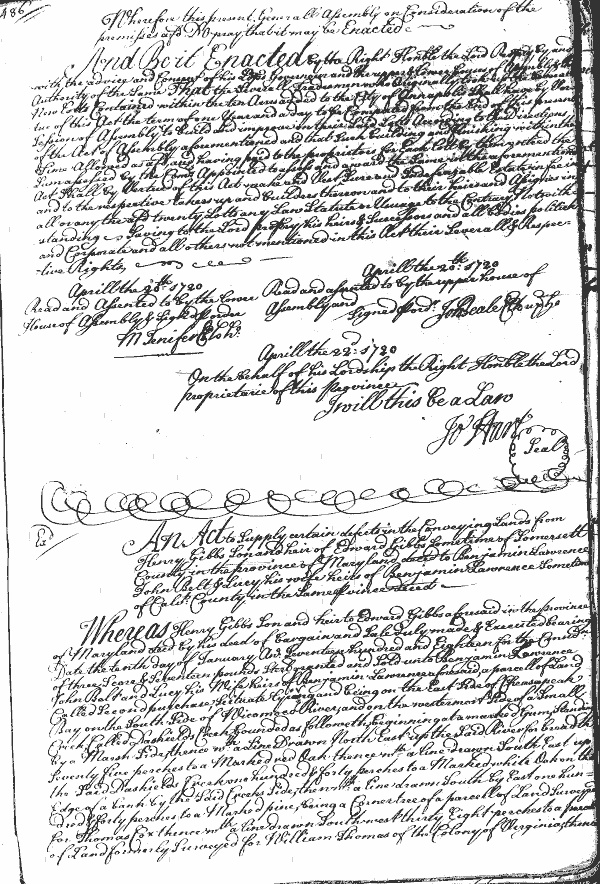 486
Wherefore this present Generall Assembly on Consideration of the
premises afsd Do pray that it may be Enacted
And Be it Enacted by the Right Honble the Lord Propry by and
with the advice and Consent of his Lordps Governor and the upper & lower houses of Assembly & the
Authority of the Same That the Severall
New Lotts Contained within the ten Acres added to the City of Annapolis Shall have by Vir
tue of this Act the term of one Year and a day to be Computed from the End of this present
Session of Assembly to build and improve on their said Lots According to the directions
of the Act of Assembly aforementioned and that Such building and finishing within the
time Allowed as afsd and having paid to the proprietors for Each lott by them entred the
Summ assess'd by the Comrs Appointed to assess and award the Same in the aforementioned
Act Shall by Vertue of this Act make and Vest Sure and Indefeazable Estate in fee in
and to the respective takers up and builders thereon and to their heirs and Assignes in
all or any the afd twenty Lotts any Law Statute or Usuage to the Contrary Notwith
standing Saving to the Lord propry his heirs & Successors and all Bodies politick
and Corporate and all others not mentioned in this Act their Severall & Respec-
-tive Rights
Aprill the 20th: 1720
Read and Assented to by the Lower
House of Assembly & Signed p order
M Jenifer Cl Lo: ho:
Aprill the 20th: 1720
Read and assented to by the upper house of
Assembly and
Signed p ord.r Jo: Beale Cl up ho
Aprill the 22d: 1720
On the behalf of his Lordship the Right Honble the Lord
proprietarie of this Province
I will this be a Law
Jo Hart
Seal
An Act to Supply certain defects in the Conveying Lands from
Henry Gibbs Son and heir of Edward Gibbs Sometime of Somersett
County in the province of Maryland decd to Benjamin Lawrence
John Belt & Lucy his wife heirs of Benjamin Lawrence Sometime
of Calvt County in the Same province deced
Whereas Henry Gibbs Son and heir to Edward Gibbs aforesaid in the province
of Maryland decd by his deed of bargain and Sale Duly made & Executed bearing
Date the tenth day of January Ao Seventeen hundred and Eighteen for the Consid
of three Score & Seventeen pounds Str granted and Sold unto Benjamin Lawrence
John Belt and Lucy his Wife heirs of Benjamin Lawrence aforesaid, a parcell of Land
Called Second purchase Scituate Lying and being on the East Side of Chesapeak
Bay on the South Side of Wicomico River and on the westermost Side of a Small
Creek Called Dashields Creek bounded as followeth beginning at a marked Gum Standing
by a Marsh Side, thence wth a Line Drawn North East up the Said River for breadth
Seventy five perches to a Marked red Oak thence wth a line drawn South East up
the Said Dashields Creek one hundred & forty perches to a Marked white Oak on the
Edge of a bank by the Said Creeks Side, then wth a line drawn South by East one hun-
dred & forty perches to a Marked pine, being a Corner tree of a parcell of Land Surveyed
for Thomas Cox thence wth a line drawn South west thirty Eight perches to a parcell
of Land formerly Surveyed for William Thomas of the Colony of Verginia, thence